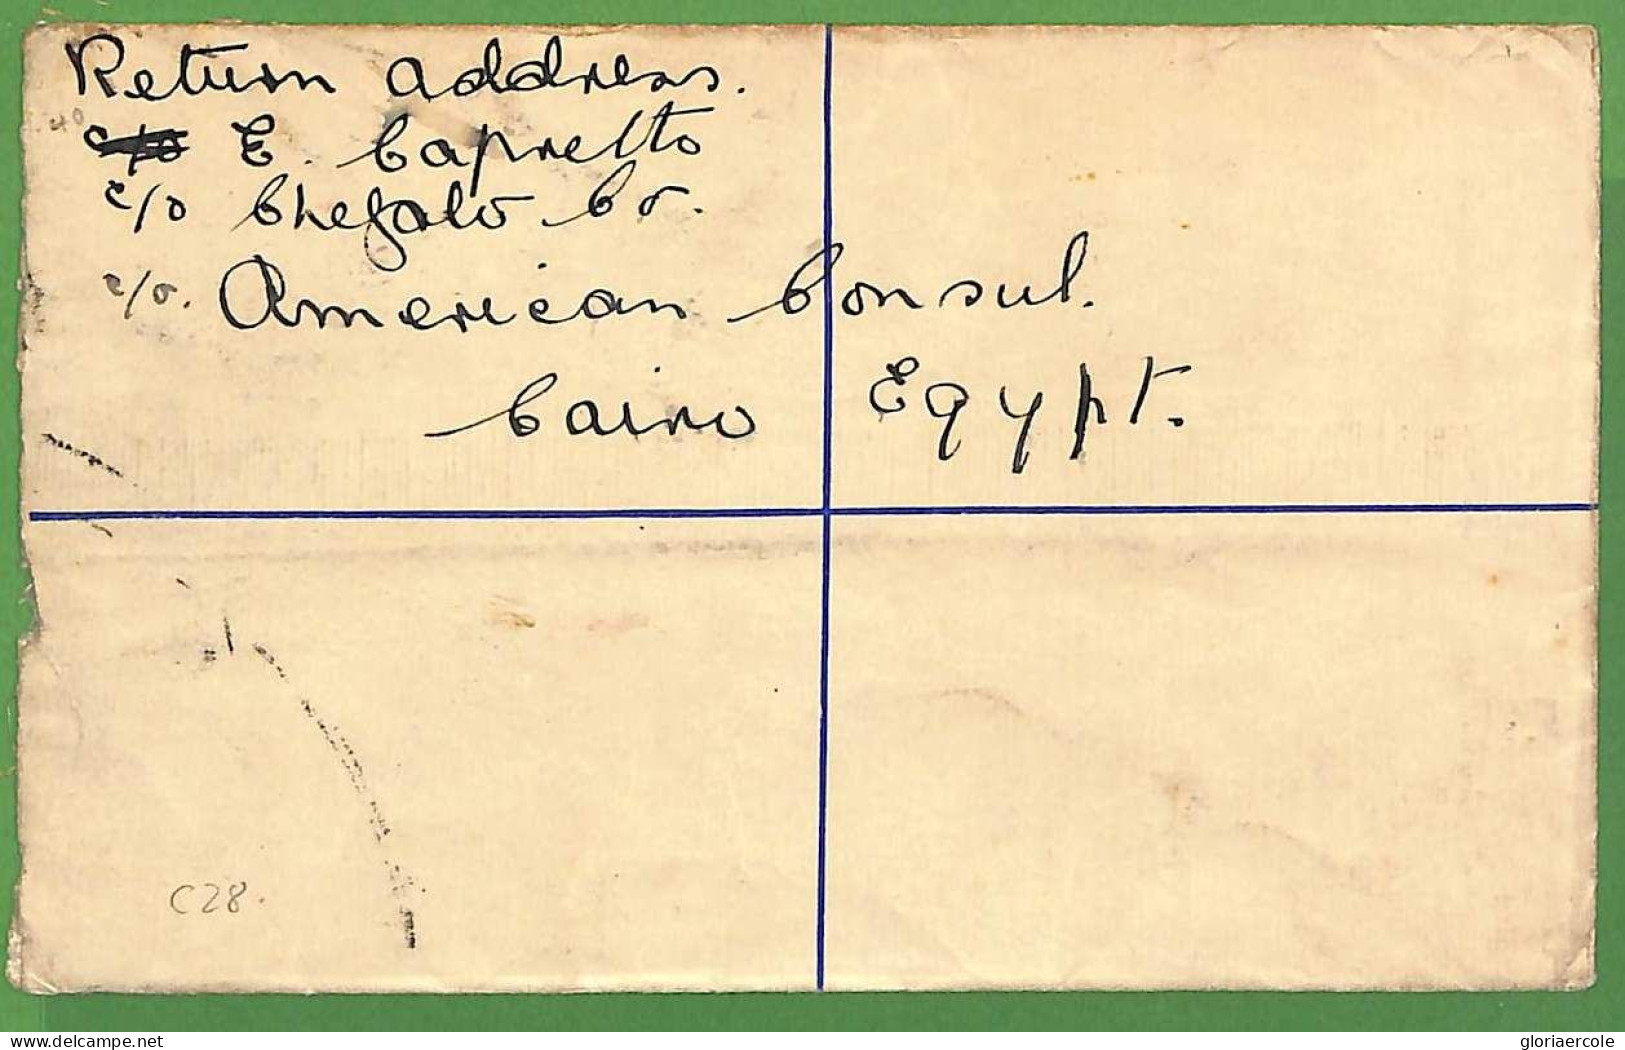 Return address.
c/o E. Capretto
c/o Chefalo Co.
c/o. American Consul.
Cairo Egypt.
C28.
delcampe.net
gloriaercole